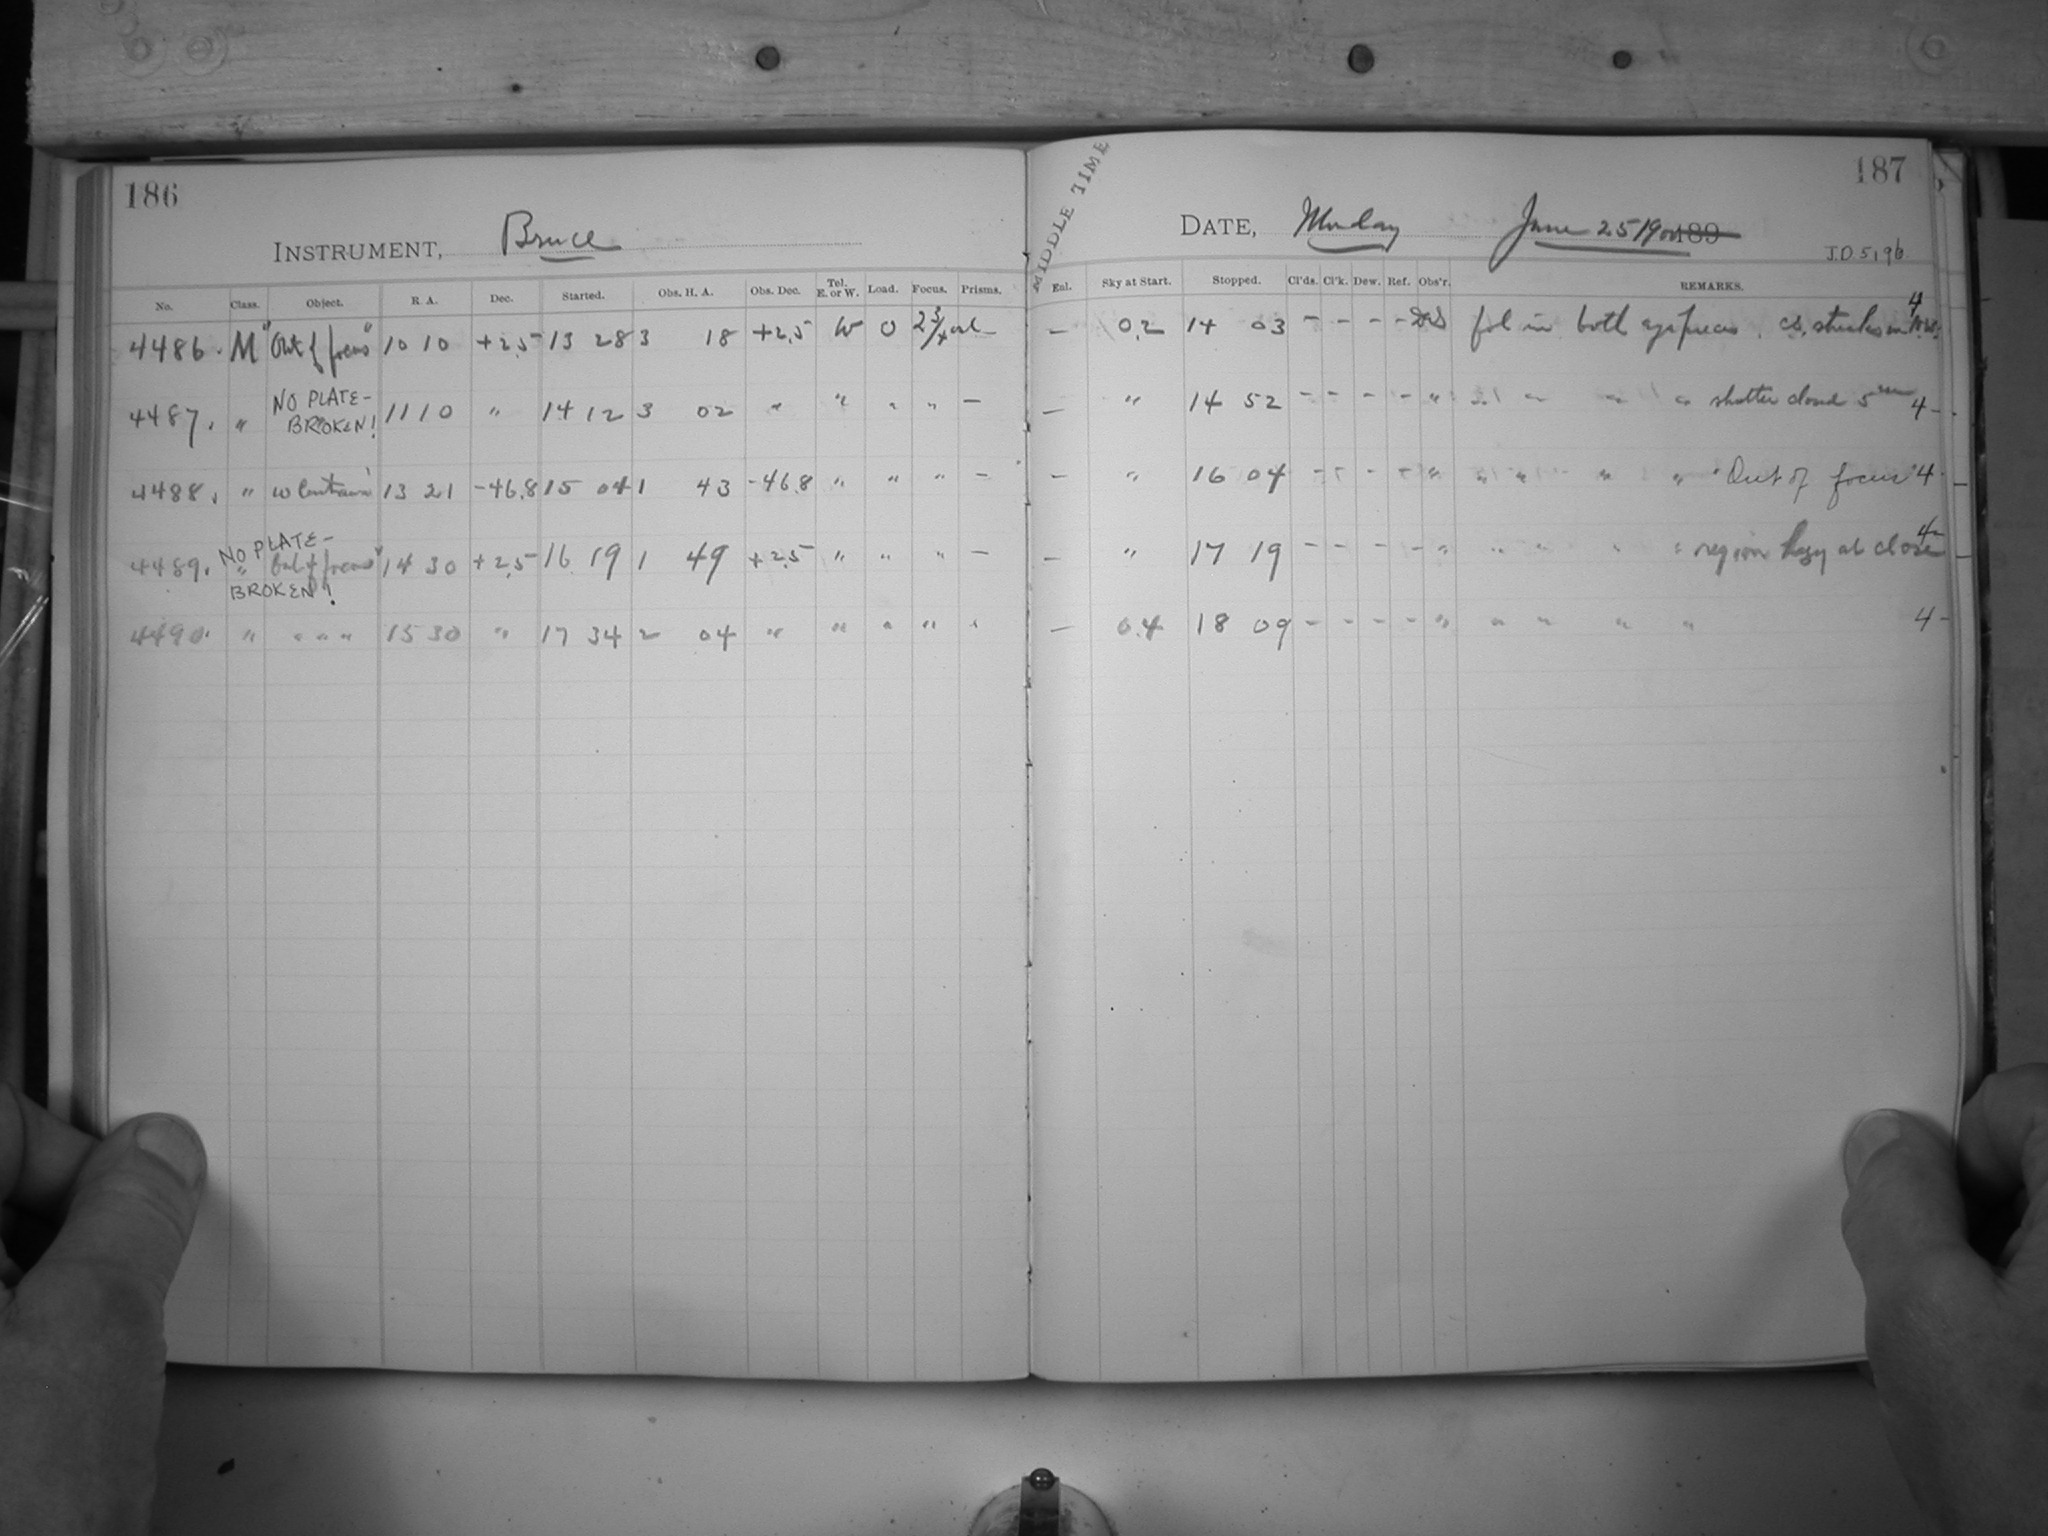 186
INSTRUMENT, Bruce
No. Class. Object. R. A. Dec. Started. Obs. H. A. Obs. Dec. Tel. E. or W. Load. Focus. Prisms.
4486. M "Out of focus" 10 10 +2.5 13 28 3 18 +2.5 W 0 2 3/4 out —
4487. " NO PLATE - BROKEN! 11 10 " 14 12 3 02 " " " " —
4488. " ω Centauri 13 21 -46.8 15 04 1 43 -46.8 " " " —
4489. " NO PLATE - BROKEN! "Out of focus" 14 30 +2.5 16 19 1 49 +2.5 " " " —
4490. " " " " 15 30 " 17 34 2 04 " " " " "
MIDDLE TIME
187
DATE, Monday June 25 1900 189
J.D. 5196
Enl. Sky at Start. Stopped. Cl'ds. Cl'k. Dew. Ref. Obs'r. REMARKS.
— 0.2 14 03 - - - - fol in both eyepieces. cs, streaks in 4
— " 14 52 - - - - " " " " " shutter closed 5m 4-
— " 16 04 - - - - " " " " " "Out of focus" 4-
— " 17 19 - - - - " " " " " region hazy at close 4-
— 0.4 18 09 - - - - " " " " " 4-